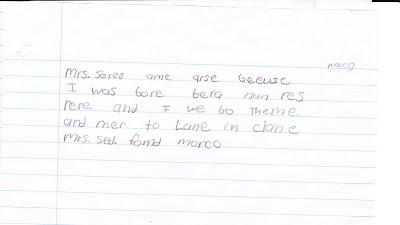 marco
Mrs. Sores ame arse beeuse
I was bore bera nun res
rere and I we bo Theme
and mer to Lane in clane
Mrs. Sed. fomd marco